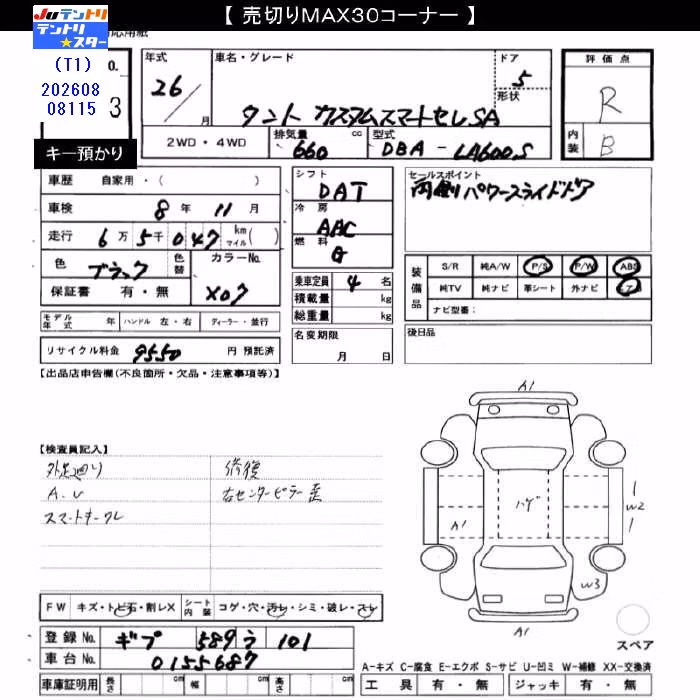 【 売切りMAX30コーナー 】
JUテントリ
テントリ★スター
(T1)
202608
08115
3
キー預かり
年式 26 / 月
車名・グレード タント カスタムスマートセレSA
ドア 5
形状
評価点 R
内装 B
2WD・4WD
排気量 660 cc
型式 DBA - LA600S
車歴 自家用・( )
車検 8年 11月
走行 6万5千047 km マイル( )
色 ブラック 色替
カラーNo. X07
保証書 有・無
モデル年式 年 ハンドル 左・右 ディーラー・並行
リサイクル料金 9550 円 預託済
シフト DAT
冷房 AAC
燃料 G
乗車定員 4 名
積載量 kg
総重量 kg
名変期限 月 日
セールスポイント
両側パワースライドドア
装備品 S/R 純A/W P/S P/W ABS
純TV 純ナビ 革シート 外ナビ
ナビ型番:
後日品
【出品店申告欄(不良箇所・欠品・注意事項等)】
【検査員記入】
外足廻り
A.U
修復
右センターピラー歪
A1
ハゲ
A1
W2
W3
A1
スペア
FW キズ・トビ石・割レX シート内装 コゲ・穴・汚レ・シミ・破レ・スレ
登録No. ギフ 589 う 101
車台No. 0155687
車庫証明用 長さ cm 幅 cm 高さ cm
A-キズ C-腐食 E-エクボ S-サビ U-凹ミ W-補修 XX-交換済
工具 有・無 ジャッキ 有・無